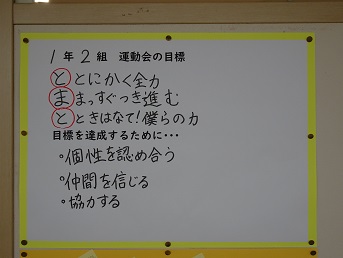 1年2組 運動会の目標
と とにかく全力
ま まっすぐつき進む
と ときはなて!僕らの力
目標を達成するために・・・
・個性を認め合う
・仲間を信じる
・協力する